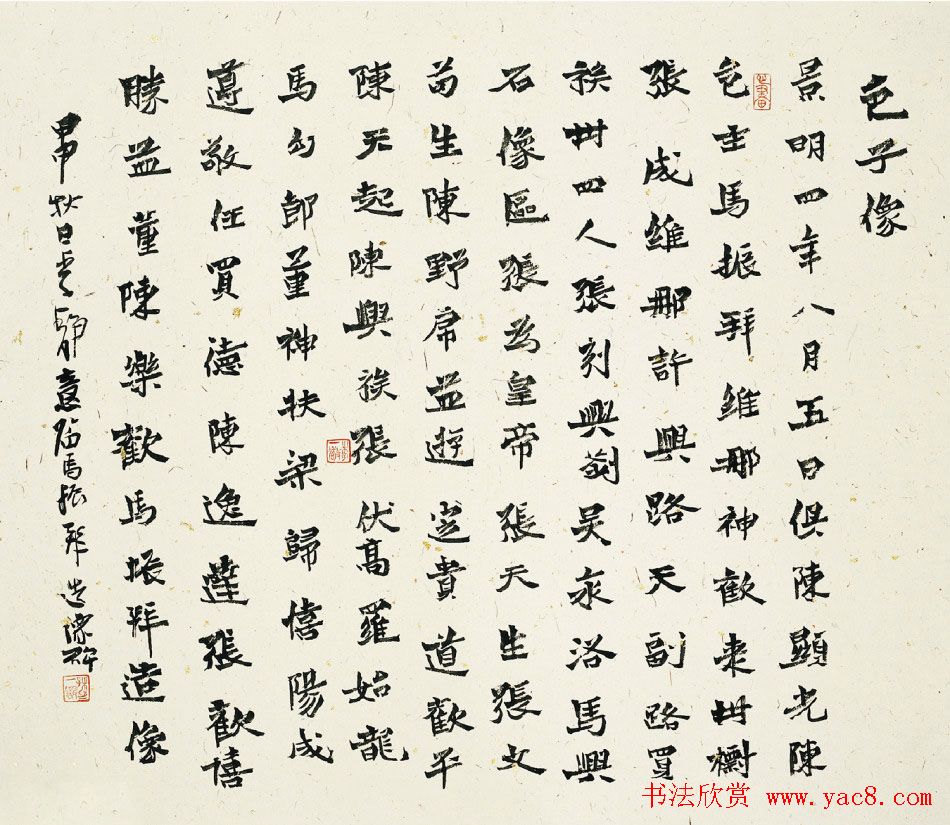 邑子像
景明四年八月五日俱陳顯光陳
邑主馬振拜維那神歡来卌櫥
張成維那許興路天副路買
族卌四人張列興劉吴永洛馬興
石像區張為皇帝張天生張文
苗生陳野席益遊芝貴道歡平
陳天起陳興族張伏高羅始龍
馬幻郎董神扶梁歸僖陽成
遵敬任買德陳逸蓮張歡僖
勝益董陳樂歡馬振拜造像
甲申秋日靜意临馬振拜造像碑
书法欣赏 www.yac8.com